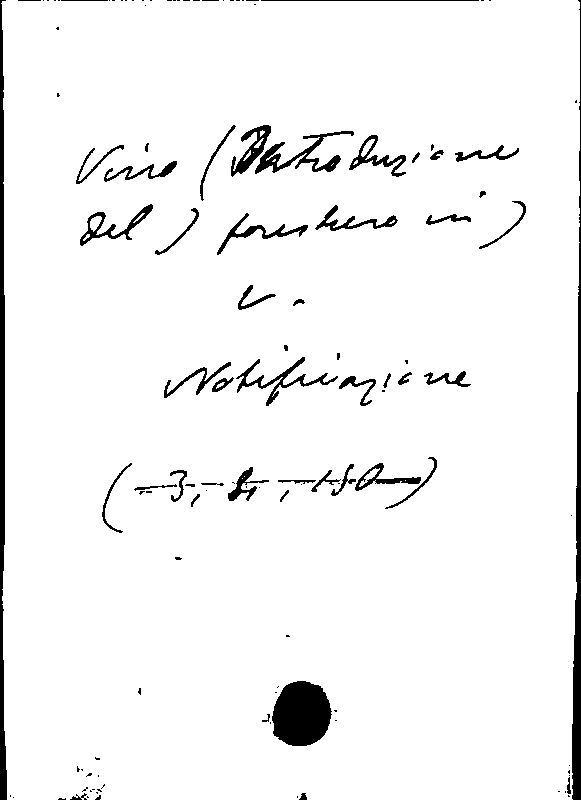 Vino (Introduzione
del) forestiero in)
v.
Notificazione
(3, 2, 150)